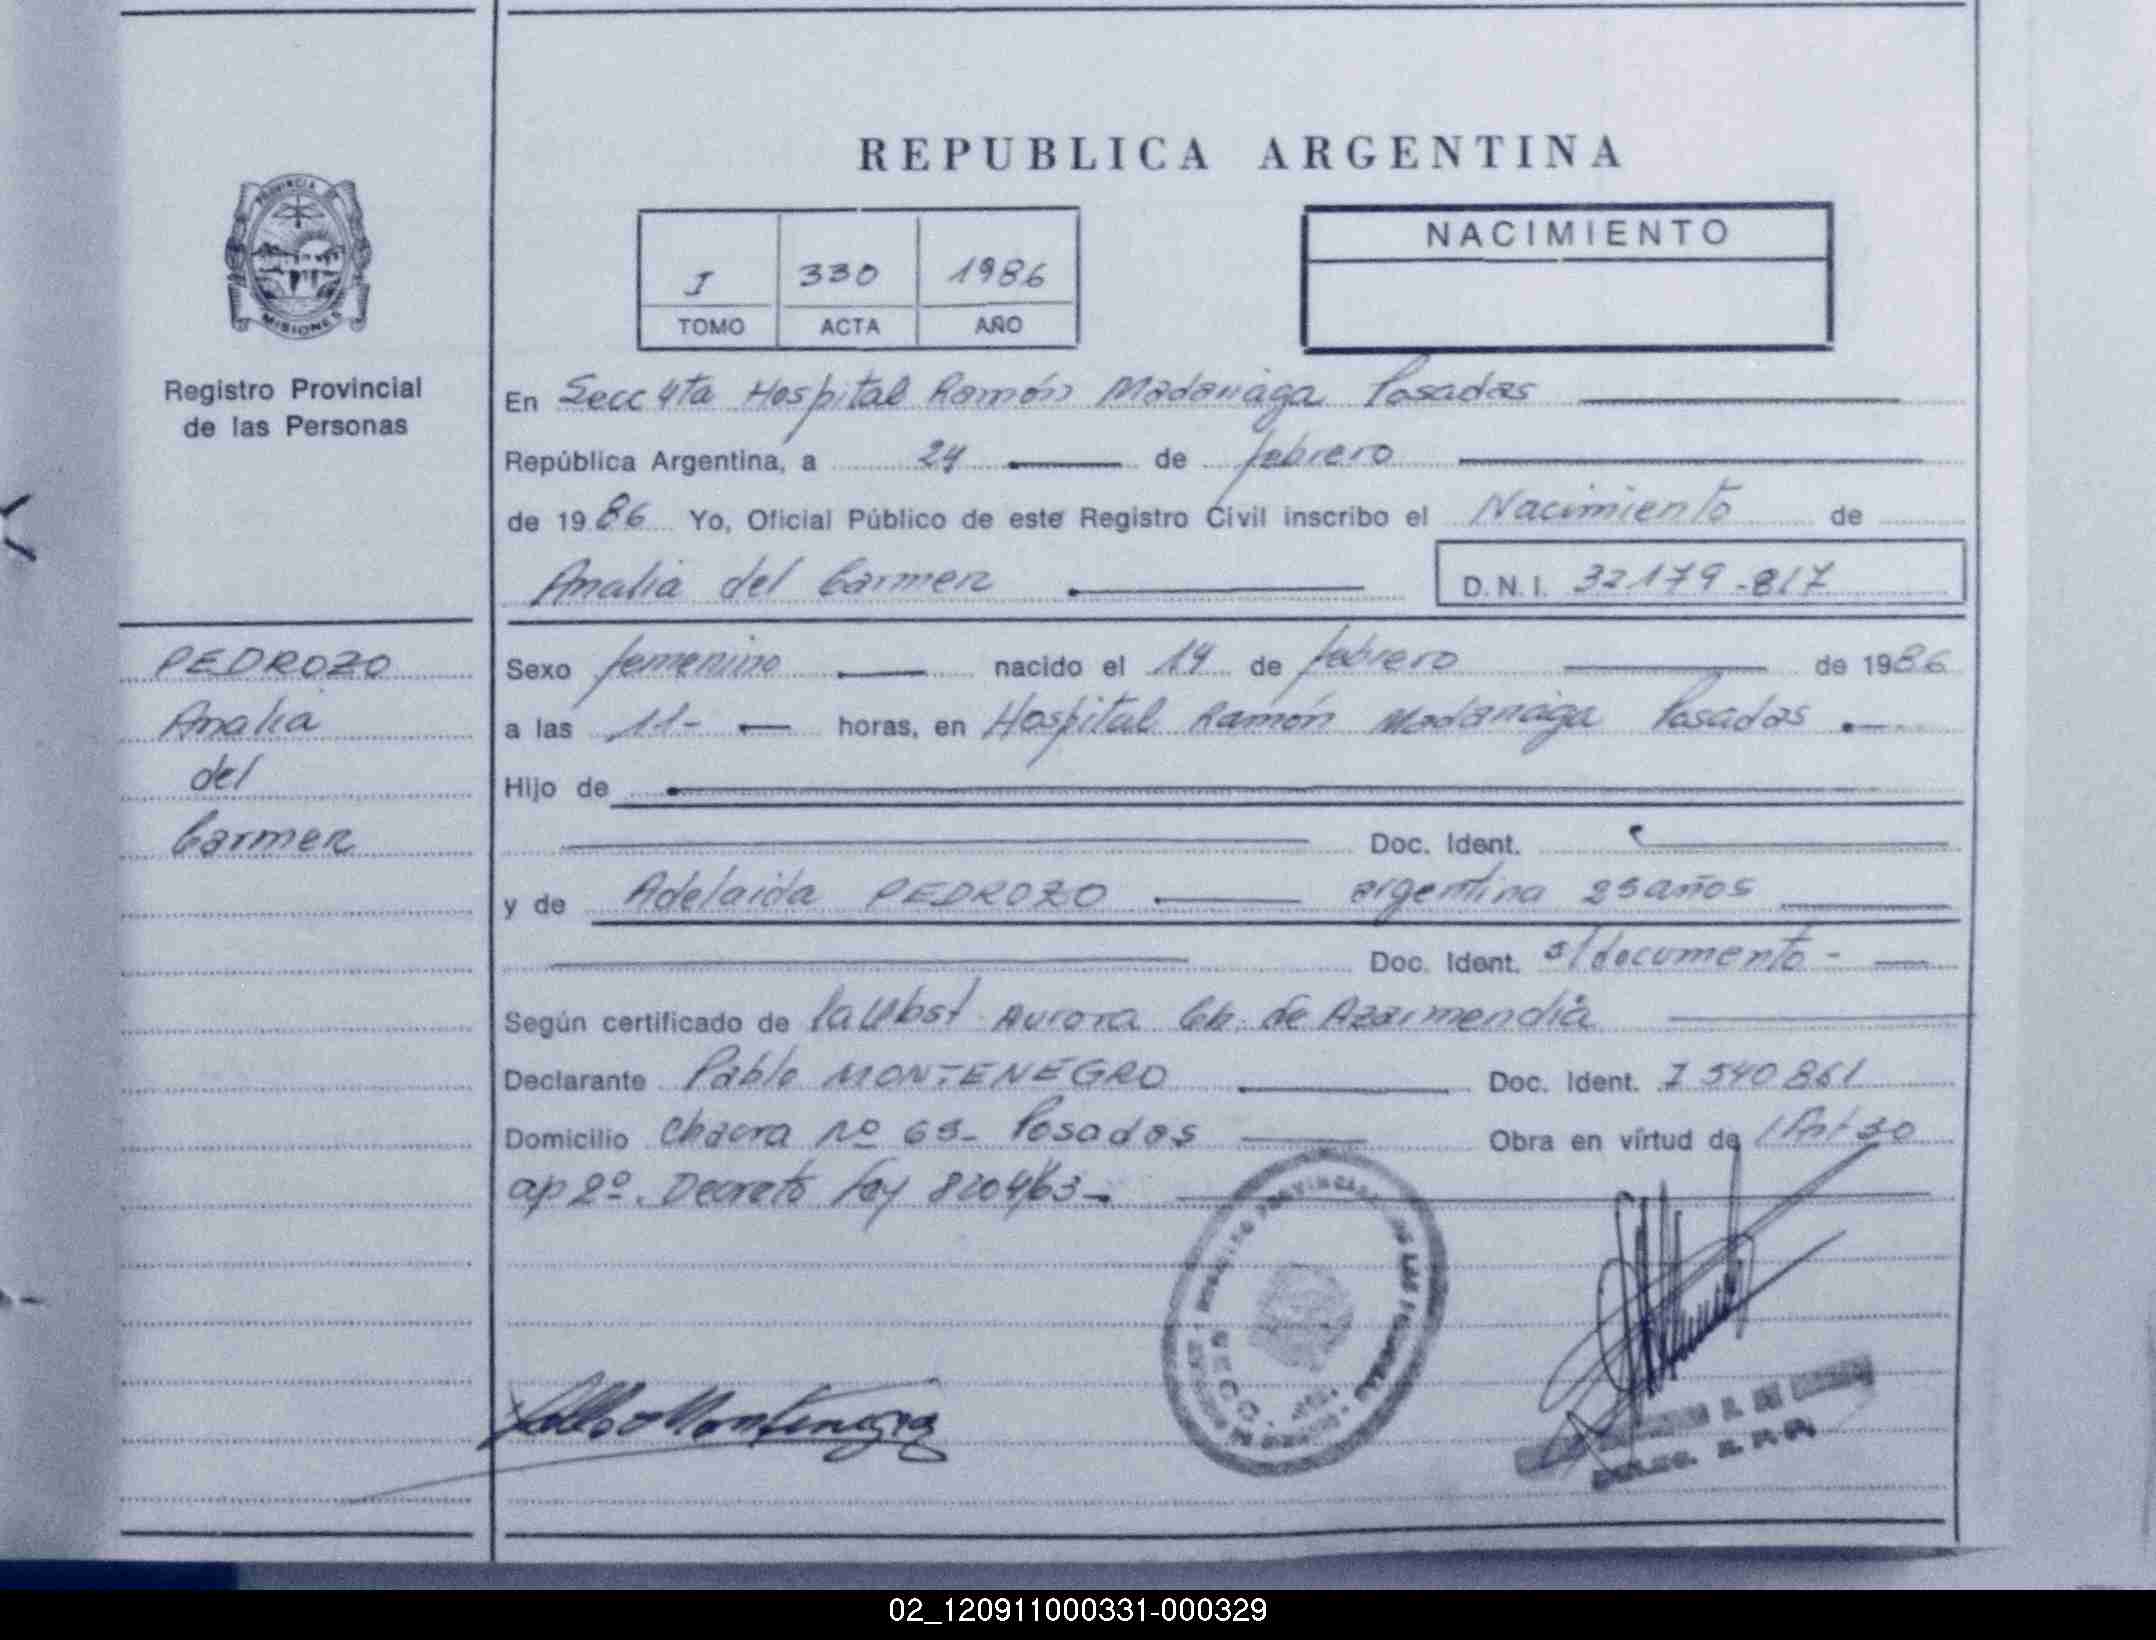 REPUBLICA ARGENTINA
PROVINCIA DE
MISIONES
Registro Provincial
de las Personas
NACIMIENTO
I 330 1986
TOMO ACTA AÑO
En Secc 4ta Hospital Ramón Madariaga Posadas
República Argentina, a 24 de febrero
de 1986 Yo, Oficial Público de este Registro Civil inscribo el Nacimiento de
Analia del Carmen D.N.I. 32179-817
PEDROZO
Analia
del
Carmen
Sexo femenino nacido el 14 de febrero de 1986
a las 11- horas, en Hospital Ramón Madariaga Posadas
Hijo de
Doc. Ident.
y de Adelaida PEDROZO argentina 25 años
Doc. Ident. s/documento -
Según certificado de la Obst Aurora de Azarmendia
Declarante Pablo MONTENEGRO Doc. Ident. I 540 861
Domicilio Chacra Nº 69- Posadas Obra en virtud de 30
ap 2º. Decreto Ley 8204/63-
Pablo Montenegro
02_120911000331-000329